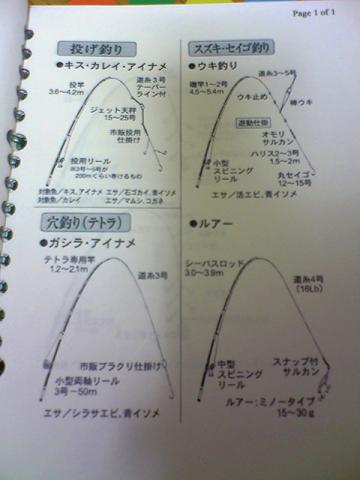 Page 1 of 1
投げ釣り
●キス・カレイ・アイナメ
投竿
3.6〜4.2m
道糸3号
テーパー
ライン付
ジェット天秤
15〜25号
市販投用
仕掛け
投用リール
※3号〜5号が
200mくらい巻けるもの
対象魚/キス、アイナメ エサ/石ゴカイ、青イソメ
対象魚/カレイ エサ/マムシ、コガネ
スズキ・セイゴ釣り
●ウキ釣り
道糸3〜5号
磯竿1〜2号
4.5〜5.4m
ウキ止め
棒ウキ
遊動仕掛
オモリ
サルカン
ハリス2〜3号
1.5〜2m
小型
スピニング
リール
丸セイゴ
12〜15号
エサ/活エビ、青イソメ
穴釣り(テトラ)
●ガシラ・アイナメ
テトラ専用竿
1.2〜2.1m
道糸3号
市販ブラクリ仕掛け
小型両軸リール
3号−50m
エサ/シラサエビ、青イソメ
●ルアー
シーバスロッド
3.0〜3.9m
道糸4号
(16Lb)
中型
スピニング
リール
スナップ付
サルカン
ルアー:ミノータイプ
15〜30g